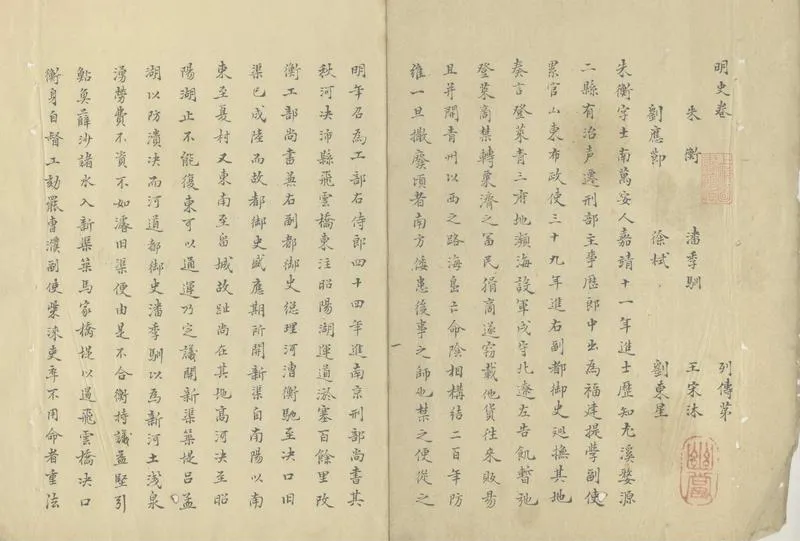 明史卷 列傳第
朱衡 潘季馴 王宗沐
劉應節 徐栻 劉東星
朱衡字士南萬安人嘉靖十一年進士歷知尤溪婺源
二縣有治声遷刑部主事歷郎中出為福建提學副使
累官山東布政使三十九年進右副都御史廵撫其地
奏言登萊青三府地瀕海設軍戍守北遼左告飢暫弛
登萊商禁轉粟濟之冨民猾商遂窃載他貨往來販易
且并開青州以西之路海島亡命陰相構結二百年防
維一旦撤廢頃者南方倭患後事之師也禁之便從之
明年召為工部右侍郎四十四年進南京刑部尚書其
秋河决沛縣飛雲橋東注昭陽湖運道淤塞百餘里改
衡工部尚書兼右副都御史緫理河漕衡馳至决口旧
渠已成陸而故都御史盛應期所開新渠自南陽以南
東至夏村又東南至畱城故趾尚在其地高河决至昭
陽湖止不能復東可以通運乃定議開新渠築堤呂孟
湖以防潰决而河道都御史潘季馴以為新河土浅泉
湧勞費不資不如濬旧渠便由是不合衡持議益堅引
鮎魚薛沙諸水入新渠築馬家橋堤以遏飛雲橋决口
衡身自督工劾罷曹濮副使柴淶吏卒不用命者重法